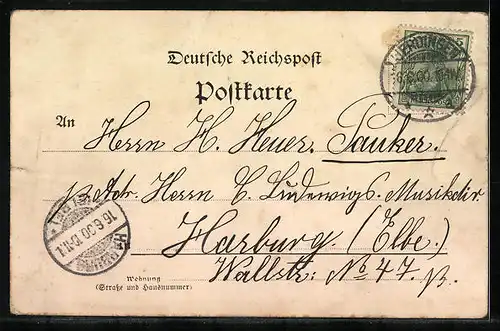 Deutsche Reichspost
Postkarte
An Herrn H. Heuer, Pauker.
p. Adr. Herrn C. Ludewigs, Musikdir.
Harburg. (Elbe.)
Wallstr: No 47. p.
Wohnung
(Straße und Hausnummer)
UERDINGEN
16.6.00.
HARBURG
16.6.00.